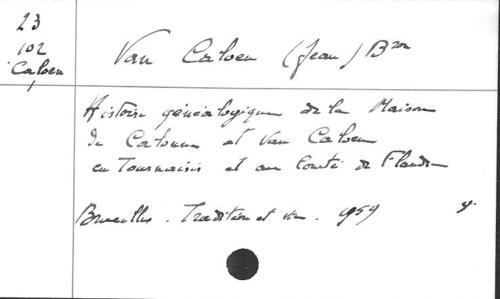 23
102
Caloen
Van Caloen (Jean) Bron
Histoire généalogique de la Maison
de Calonne et Van Caloen
en Tournaisis et au Comté de Flandre
Bruxelles. Tradition et vie. 1959